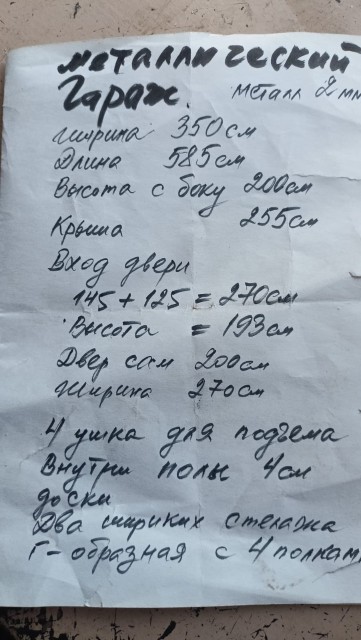 металлический
Гараж. металл 2 мм
ширина 350см
Длина 585см
Высота с боку 200см
Крыша 255см
Вход двери
145 + 125 = 270см
Высота = 193см
Двер сам 200см
Ширина 270см
4 ушка для подъема
Внутри полы 4см
доски
Два шириких стелажа
Г-образная с 4 полкам